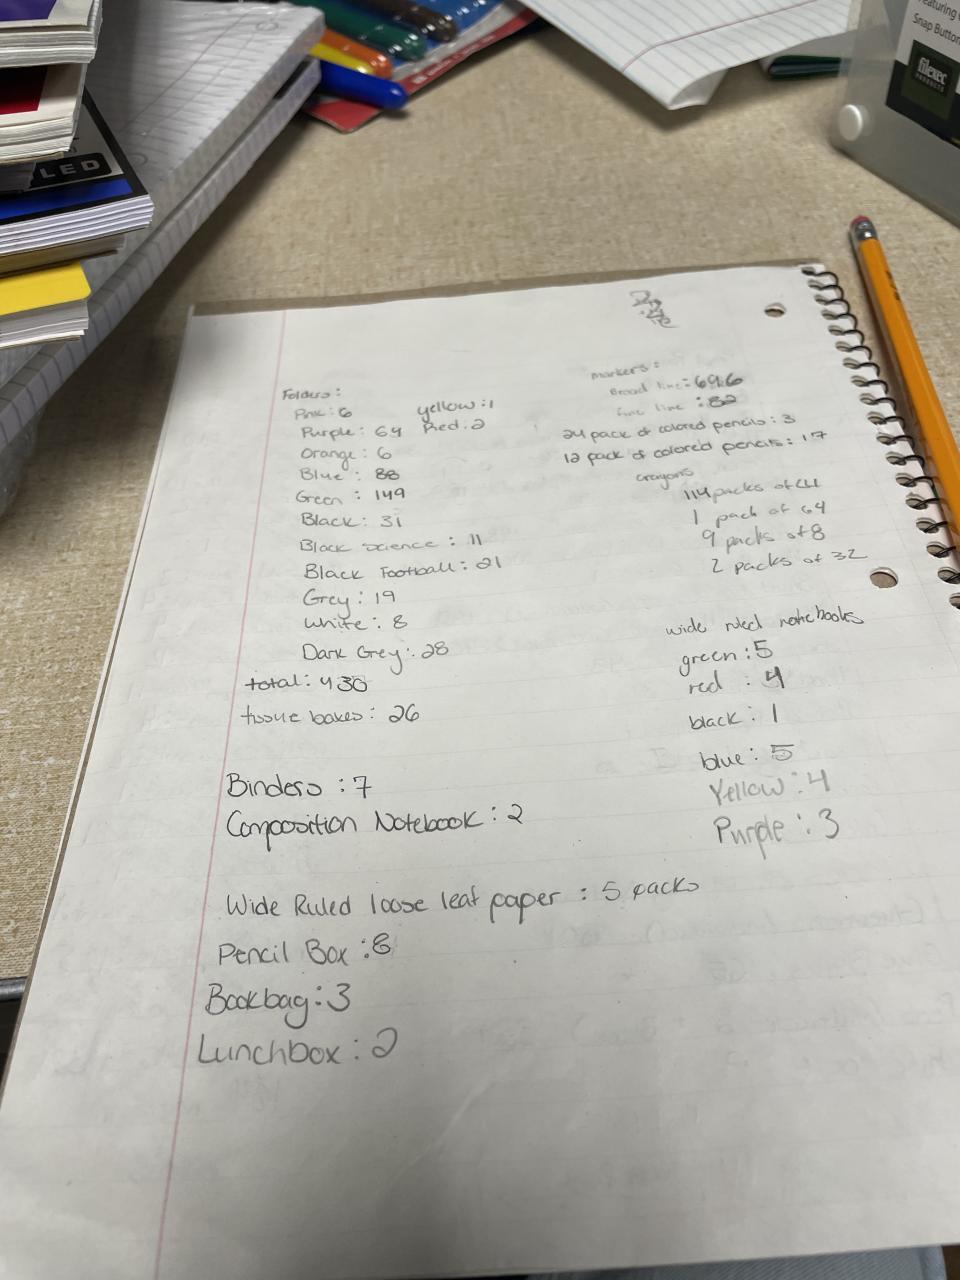 Featuring
Snap Button
filexec
PRODUCTS
LED
Folders:
Pink: 6 yellow: 1
Purple: 64 Red: 2
Orange: 6
Blue: 88
Green: 149
Black: 31
Black science: 11
Black Football: 21
Grey: 19
White: 8
Dark Grey: 28
total: 430
tissue boxes: 26
Binders: 7
Composition Notebook: 2
Wide Ruled loose leaf paper: 5 packs
Pencil Box: 8
Bookbag: 3
Lunchbox: 2
markers:
Broad line:
fine line: 82
24 pack of colored pencils: 3
12 pack of colored pencils: 17
crayons
114 packs of
1 pack of 64
9 packs of 8
2 packs of 32
wide ruled notebooks
green: 5
red: 4
black: 1
blue: 5
Yellow: 4
Purple: 3